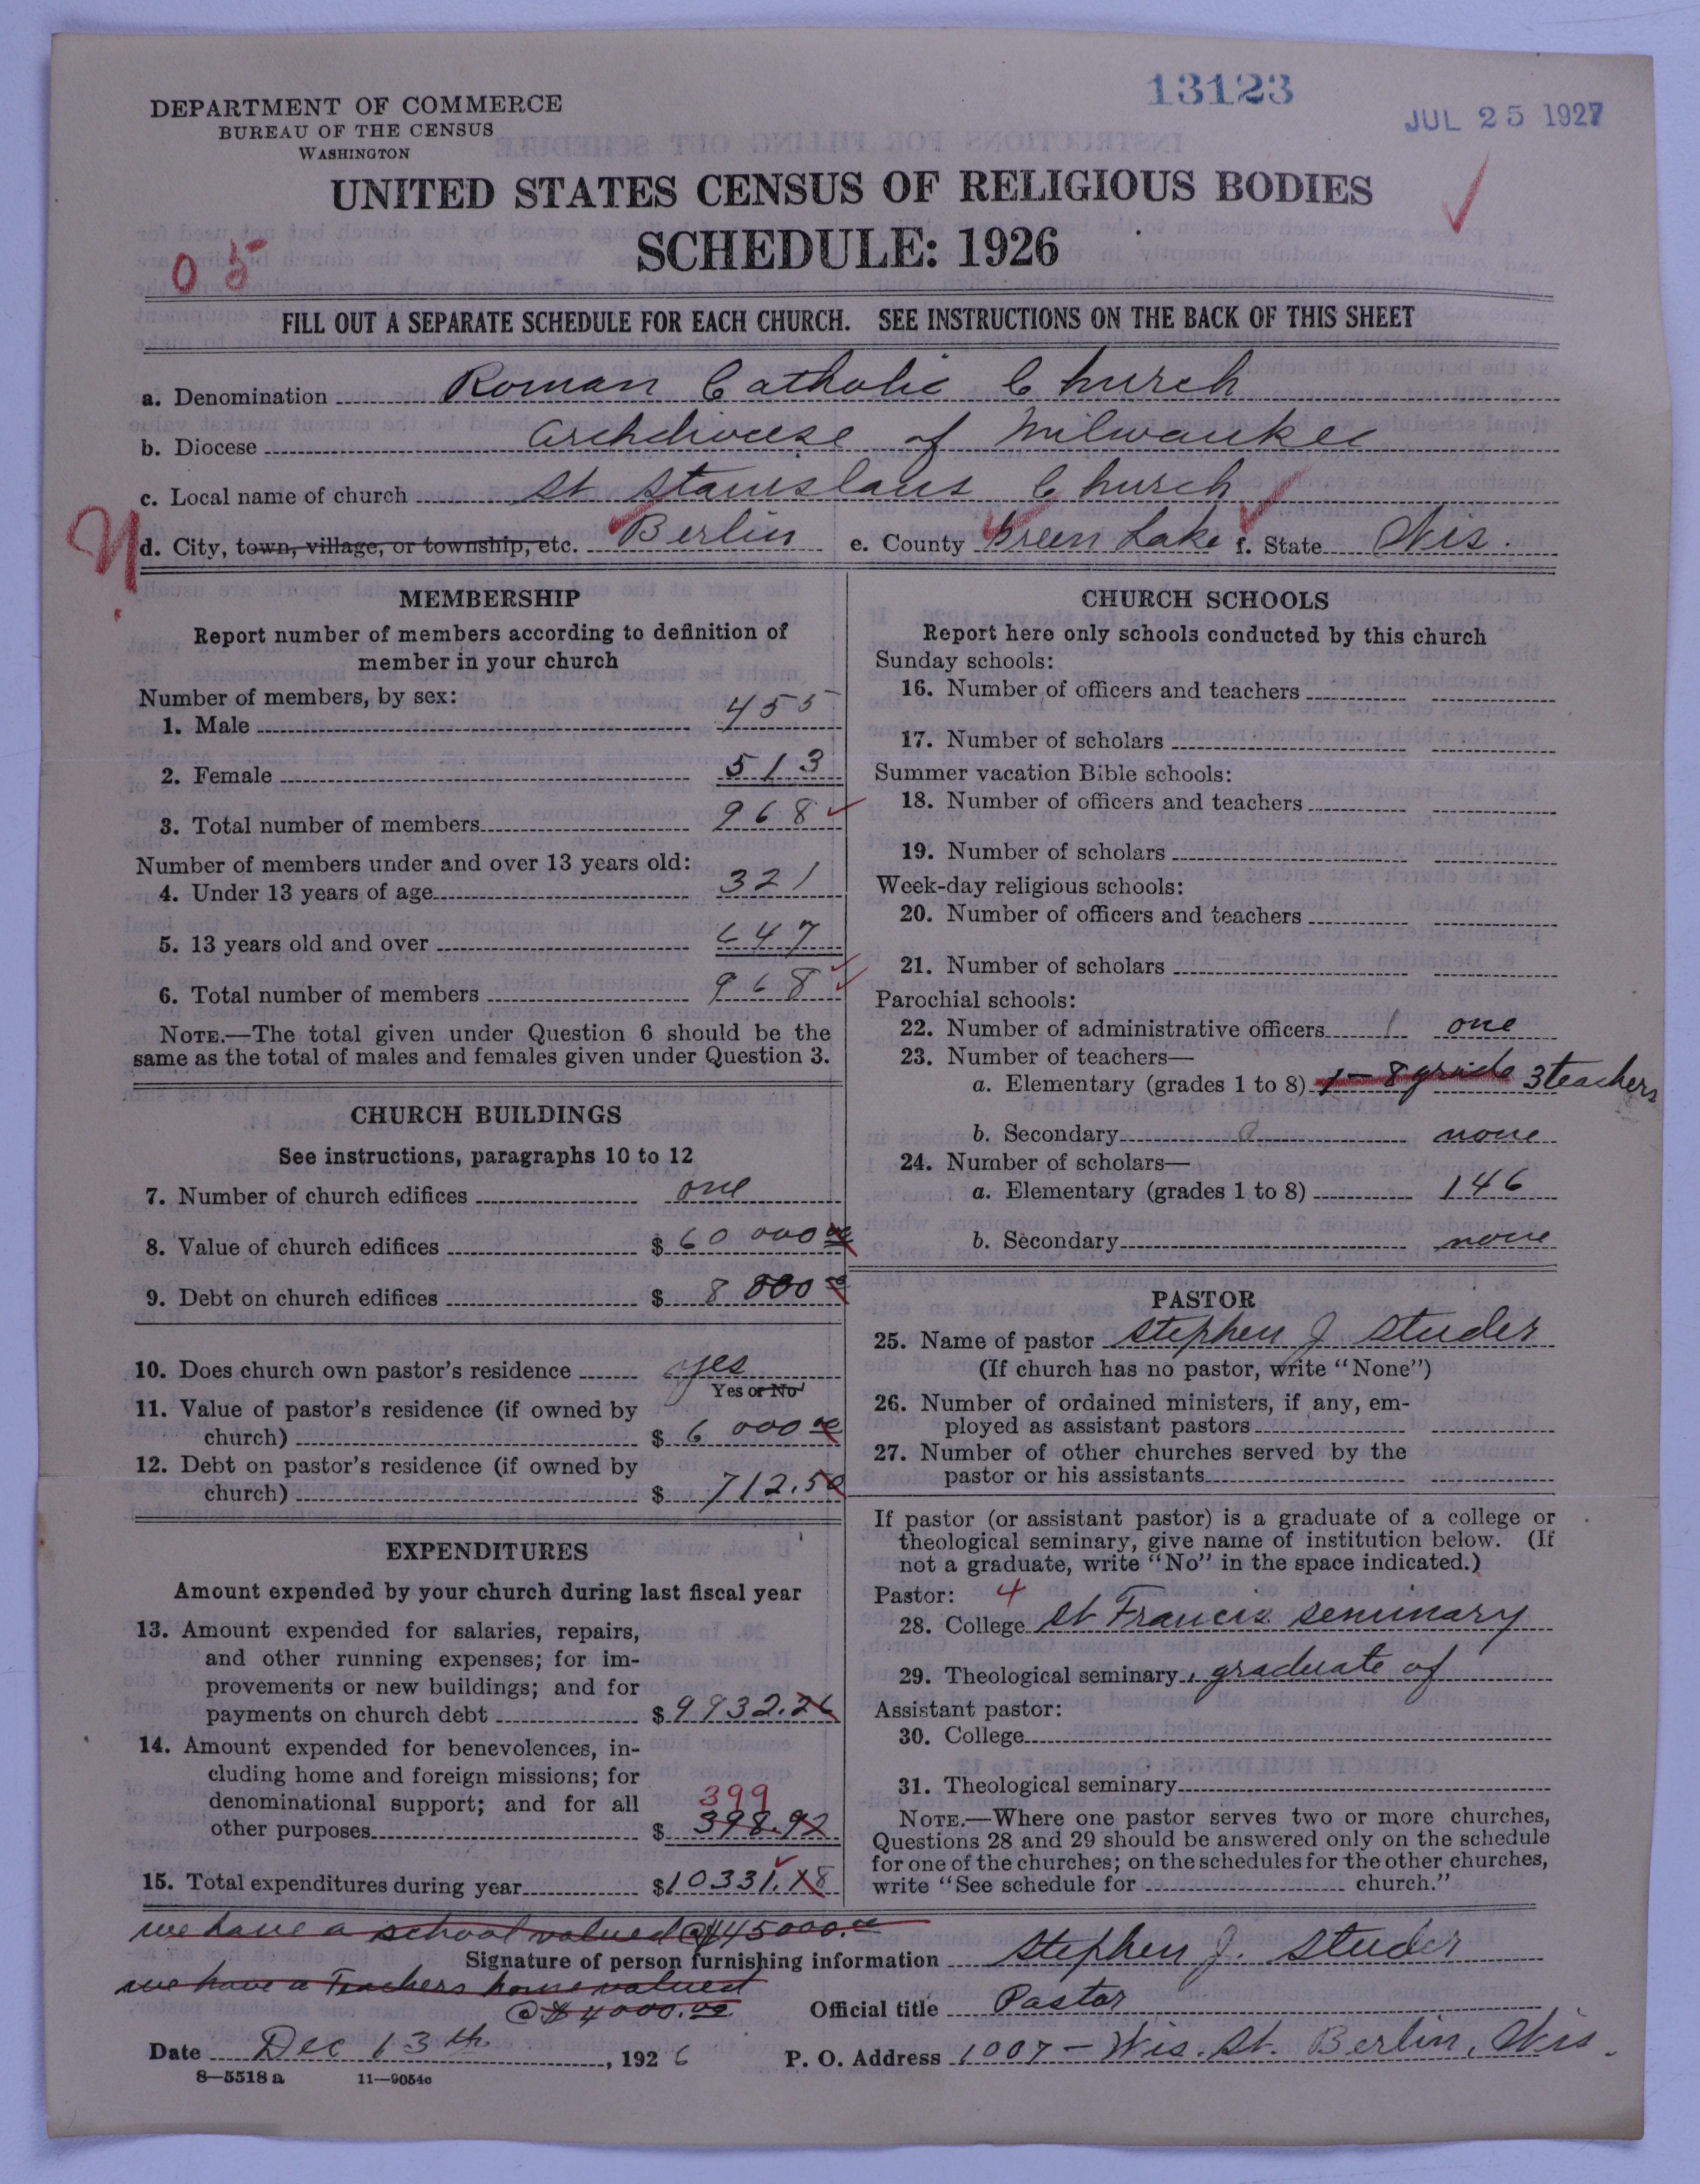 13123
JUL 25 1927
DEPARTMENT OF COMMERCE
BUREAU OF THE CENSUS
WASHINGTON
UNITED STATES CENSUS OF RELIGIOUS BODIES
SCHEDULE: 1926
05
FILL OUT A SEPARATE SCHEDULE FOR EACH CHURCH. SEE INSTRUCTIONS ON THE BACK OF THIS SHEET
a. Denomination Roman Catholic Church
b. Diocese Archdiocese of Milwaukee
c. Local name of church St Stanislaus Church
d. City, town, village, or township, etc. Berlin e. County Green Lake f. State Wis.
MEMBERSHIP
Report number of members according to definition of
member in your church
Number of members, by sex:
1. Male 455
2. Female 513
3. Total number of members 968
Number of members under and over 13 years old:
4. Under 13 years of age 321
5. 13 years old and over 647
6. Total number of members 968
NOTE.—The total given under Question 6 should be the
same as the total of males and females given under Question 3.
CHURCH BUILDINGS
See instructions, paragraphs 10 to 12
7. Number of church edifices one
8. Value of church edifices $ 60 000 00
9. Debt on church edifices $ 8 000 00
10. Does church own pastor's residence yes
Yes or No
11. Value of pastor's residence (if owned by
church) $ 6 000 00
12. Debt on pastor's residence (if owned by
church) $ 712.50
EXPENDITURES
Amount expended by your church during last fiscal year
13. Amount expended for salaries, repairs,
and other running expenses; for im-
provements or new buildings; and for
payments on church debt $ 9932.26
14. Amount expended for benevolences, in-
cluding home and foreign missions; for
denominational support; and for all 399
other purposes $ 398.92
15. Total expenditures during year $10331.18
CHURCH SCHOOLS
Report here only schools conducted by this church
Sunday schools:
16. Number of officers and teachers
17. Number of scholars
Summer vacation Bible schools:
18. Number of officers and teachers
19. Number of scholars
Week-day religious schools:
20. Number of officers and teachers
21. Number of scholars
Parochial schools:
22. Number of administrative officers 1 one
23. Number of teachers—
a. Elementary (grades 1 to 8) 1–8 grade 3 teachers
b. Secondary 0 none
24. Number of scholars—
a. Elementary (grades 1 to 8) 146
b. Secondary none
PASTOR
25. Name of pastor Stephen J Studer
(If church has no pastor, write "None")
26. Number of ordained ministers, if any, em-
ployed as assistant pastors
27. Number of other churches served by the
pastor or his assistants
If pastor (or assistant pastor) is a graduate of a college or
theological seminary, give name of institution below. (If
not a graduate, write "No" in the space indicated.)
Pastor: 4
28. College St Francis Seminary
29. Theological seminary graduate of
Assistant pastor:
30. College
31. Theological seminary
NOTE.—Where one pastor serves two or more churches,
Questions 28 and 29 should be answered only on the schedule
for one of the churches; on the schedules for the other churches,
write "See schedule for church."
we have a school valued @ $45000.00
Signature of person furnishing information Stephen J. Studer
we have a Teachers home valued
@ $4000.00
Official title Pastor
Date Dec 13th, 1926 P. O. Address 1007 – Wis. St. Berlin, Wis.
8—5518 a 11—9054c